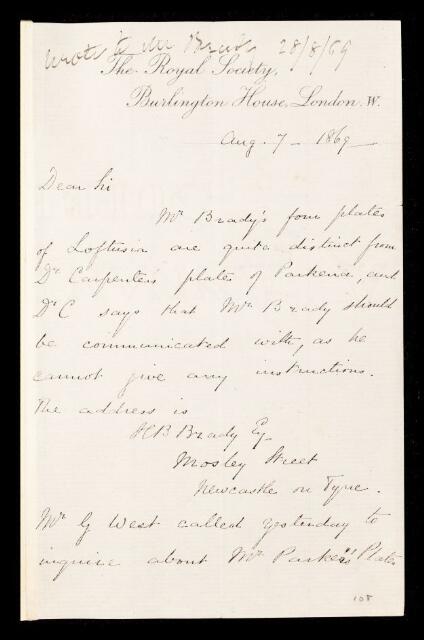 Wrote to Mr Brady 28/8/69
The Royal Society,
Burlington House, London. W.
Aug. 7 - 1869
Dear Sir
Mr Brady's four plates
of Loftusia are quite distinct from
Dr Carpenter's plates of Parkeria, and
Dr C says that Mr Brady should
be communicated with, as he
cannot give any instructions.
The address is
HB Brady Eq
Mosley Street
Newcastle on Tyne.
Mr G West called yesterday to
inquire about Mr Parker's Plates
108